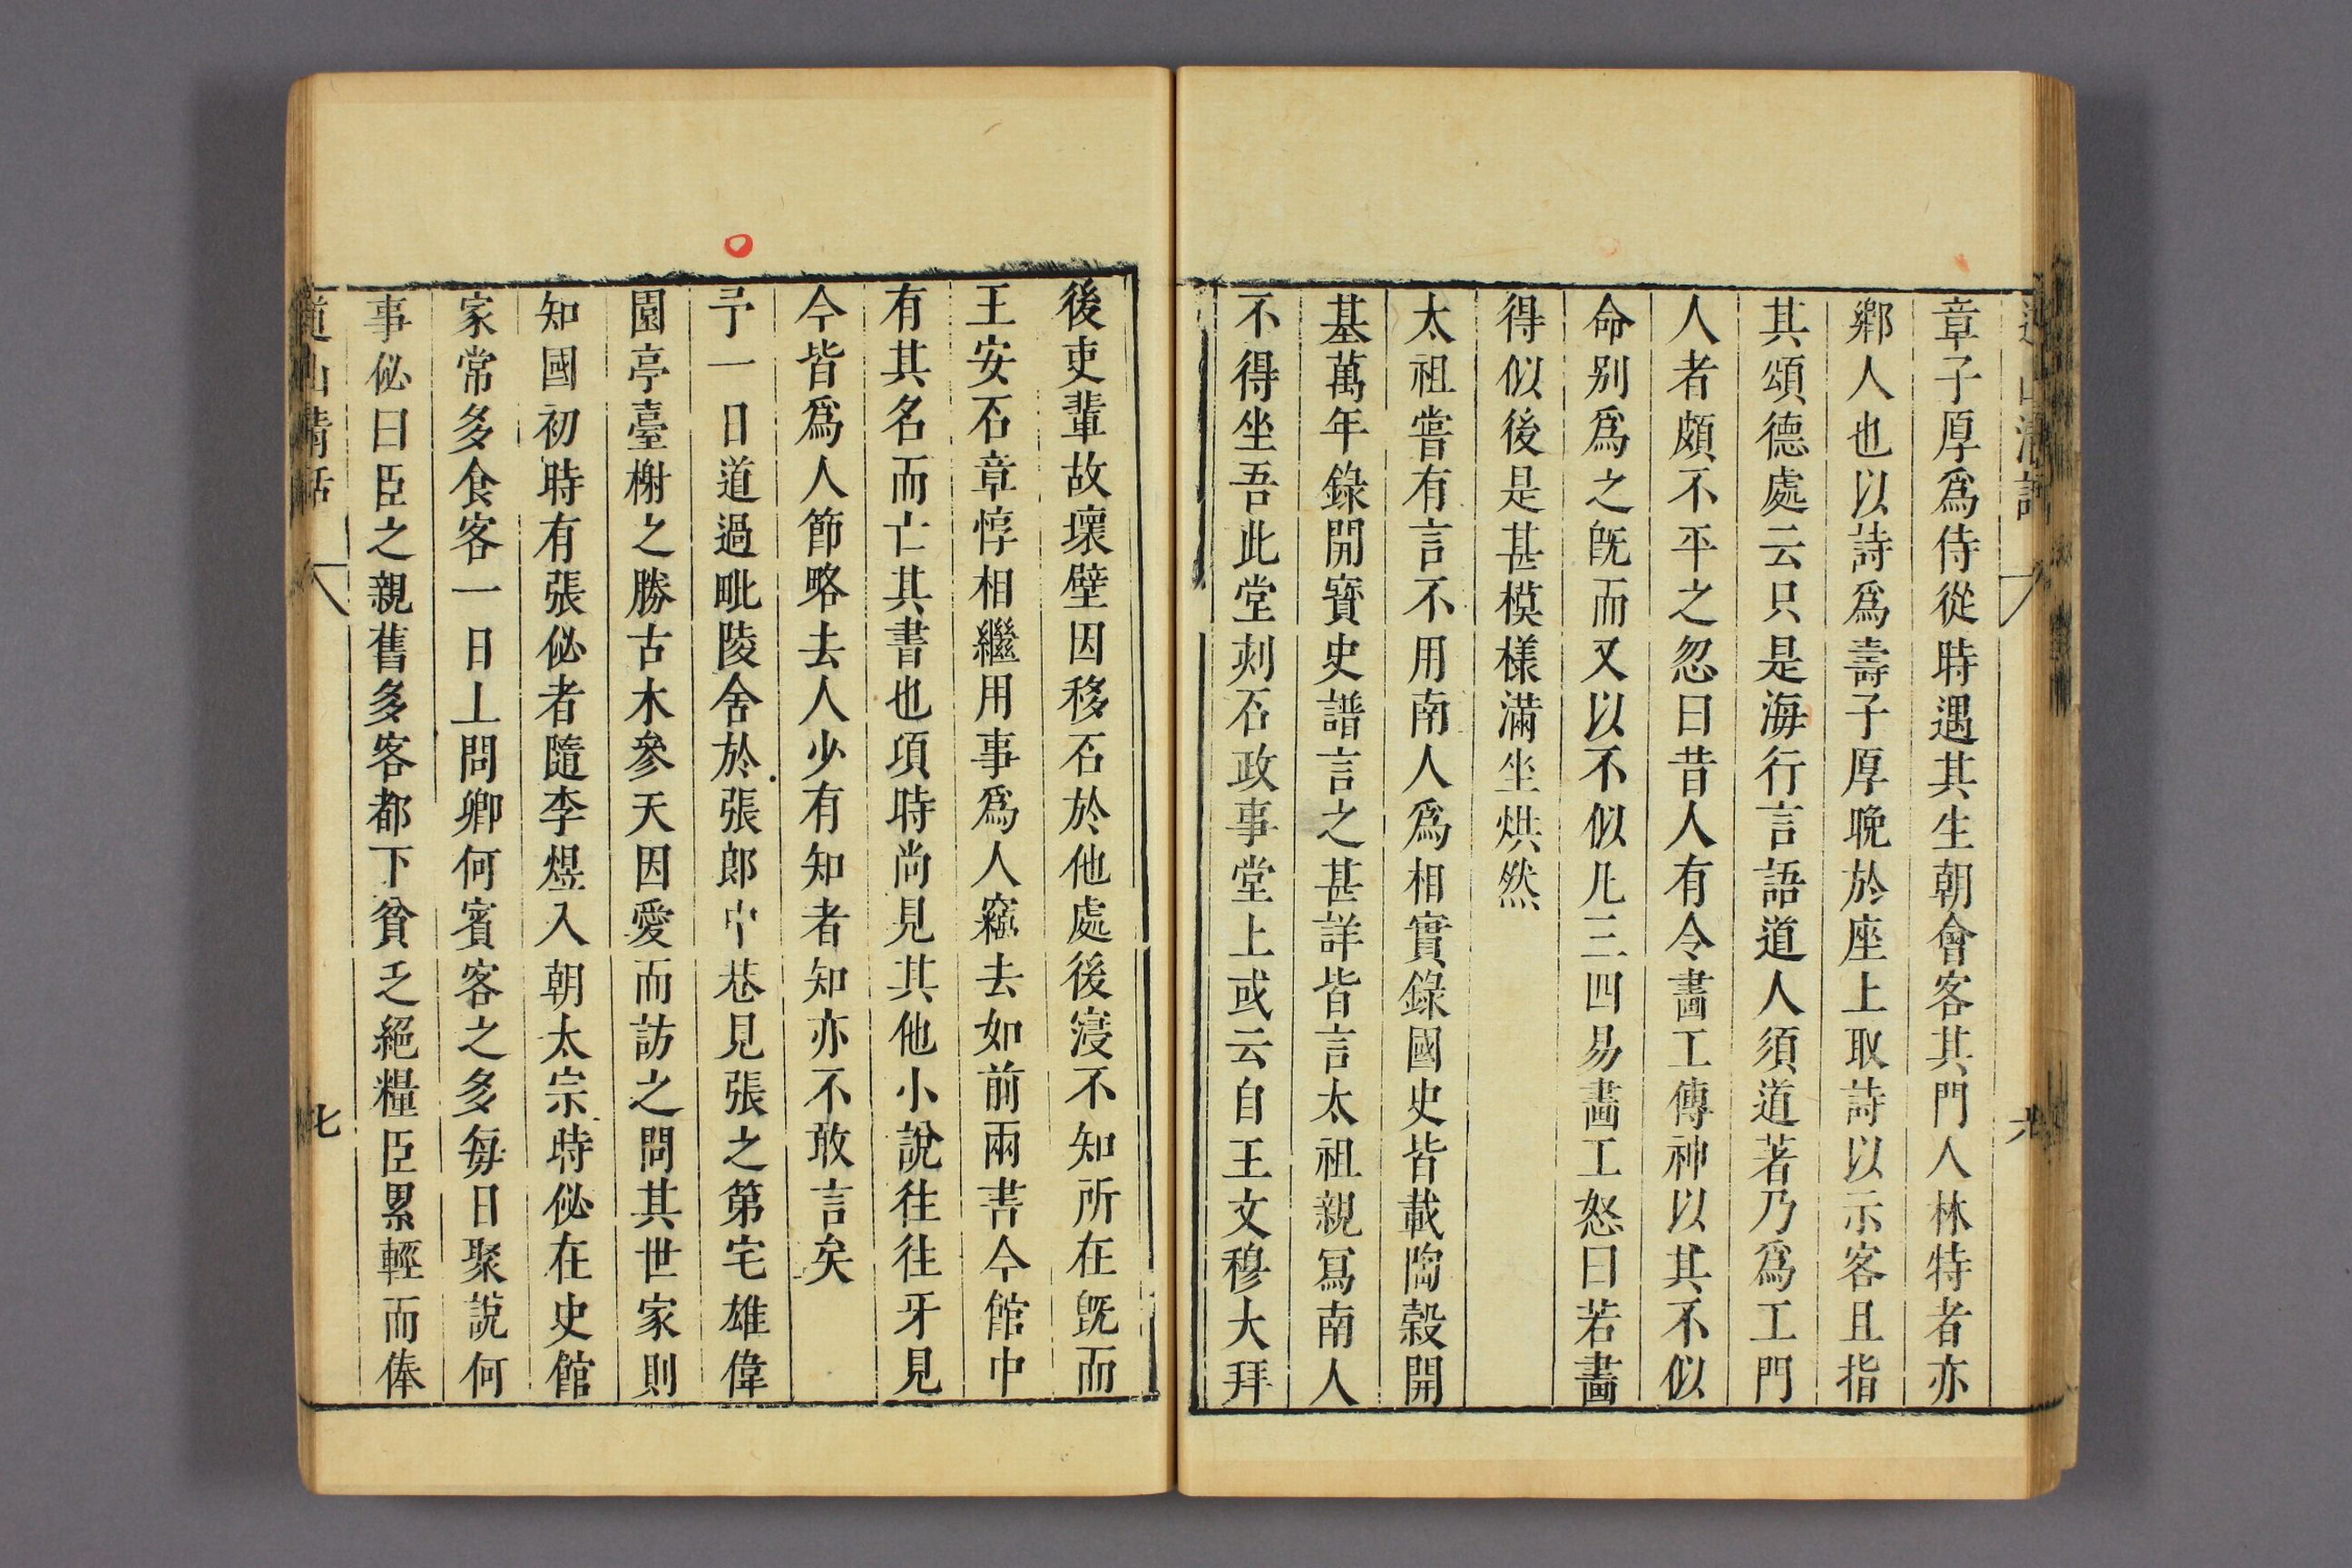 章子厚爲侍從時遇其生朝會客其門人林特者亦
鄉人也以詩爲壽子厚晚於座上取詩以示客且指
其頌德處云只是海行言語道人須道著乃爲工門
人者頗不平之忽曰昔人有令畵工傳神以其不似
命別爲之旣而又以不似凢三四易畵工怒曰若畵
得似後是甚模樣滿坐烘然
太祖嘗有言不用南人爲相實錄國史皆載陶穀開
基萬年錄開寳史譜言之甚詳皆言太祖親冩南人
不得坐吾此堂刻石政事堂上或云自王文穆大拜
後吏輩故壞壁因移石於他處後寖不知所在旣而
王安石章惇相繼用事爲人竊去如前兩書今館中
有其名而亡其書也項時尚見其他小說往往牙見
今皆爲人節略去人少有知者知亦不敢言矣
予一日道過毗陵舍於張郎中巷見張之第宅雄偉
園亭臺榭之勝古木參天因愛而訪之問其世家則
知國初時有張佖者隨李煜入朝太宗時佖在史館
家常多食客一日上問卿何賓客之多每日聚說何
事佖曰臣之親舊多客都下貧乏絕糧臣累輕而俸
道山清話
七